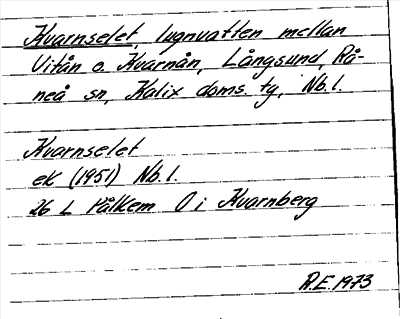 Kvarnselet, lugnvatten mellan
Vitån o. Kvarnån, Långsund, Rå-
neå sn, Kalix doms. tg, Nb. l.
Kvarnselet
ek (1951) Nb. l.
26 L Pålkem O i Kvarnberg
R.E. 1973